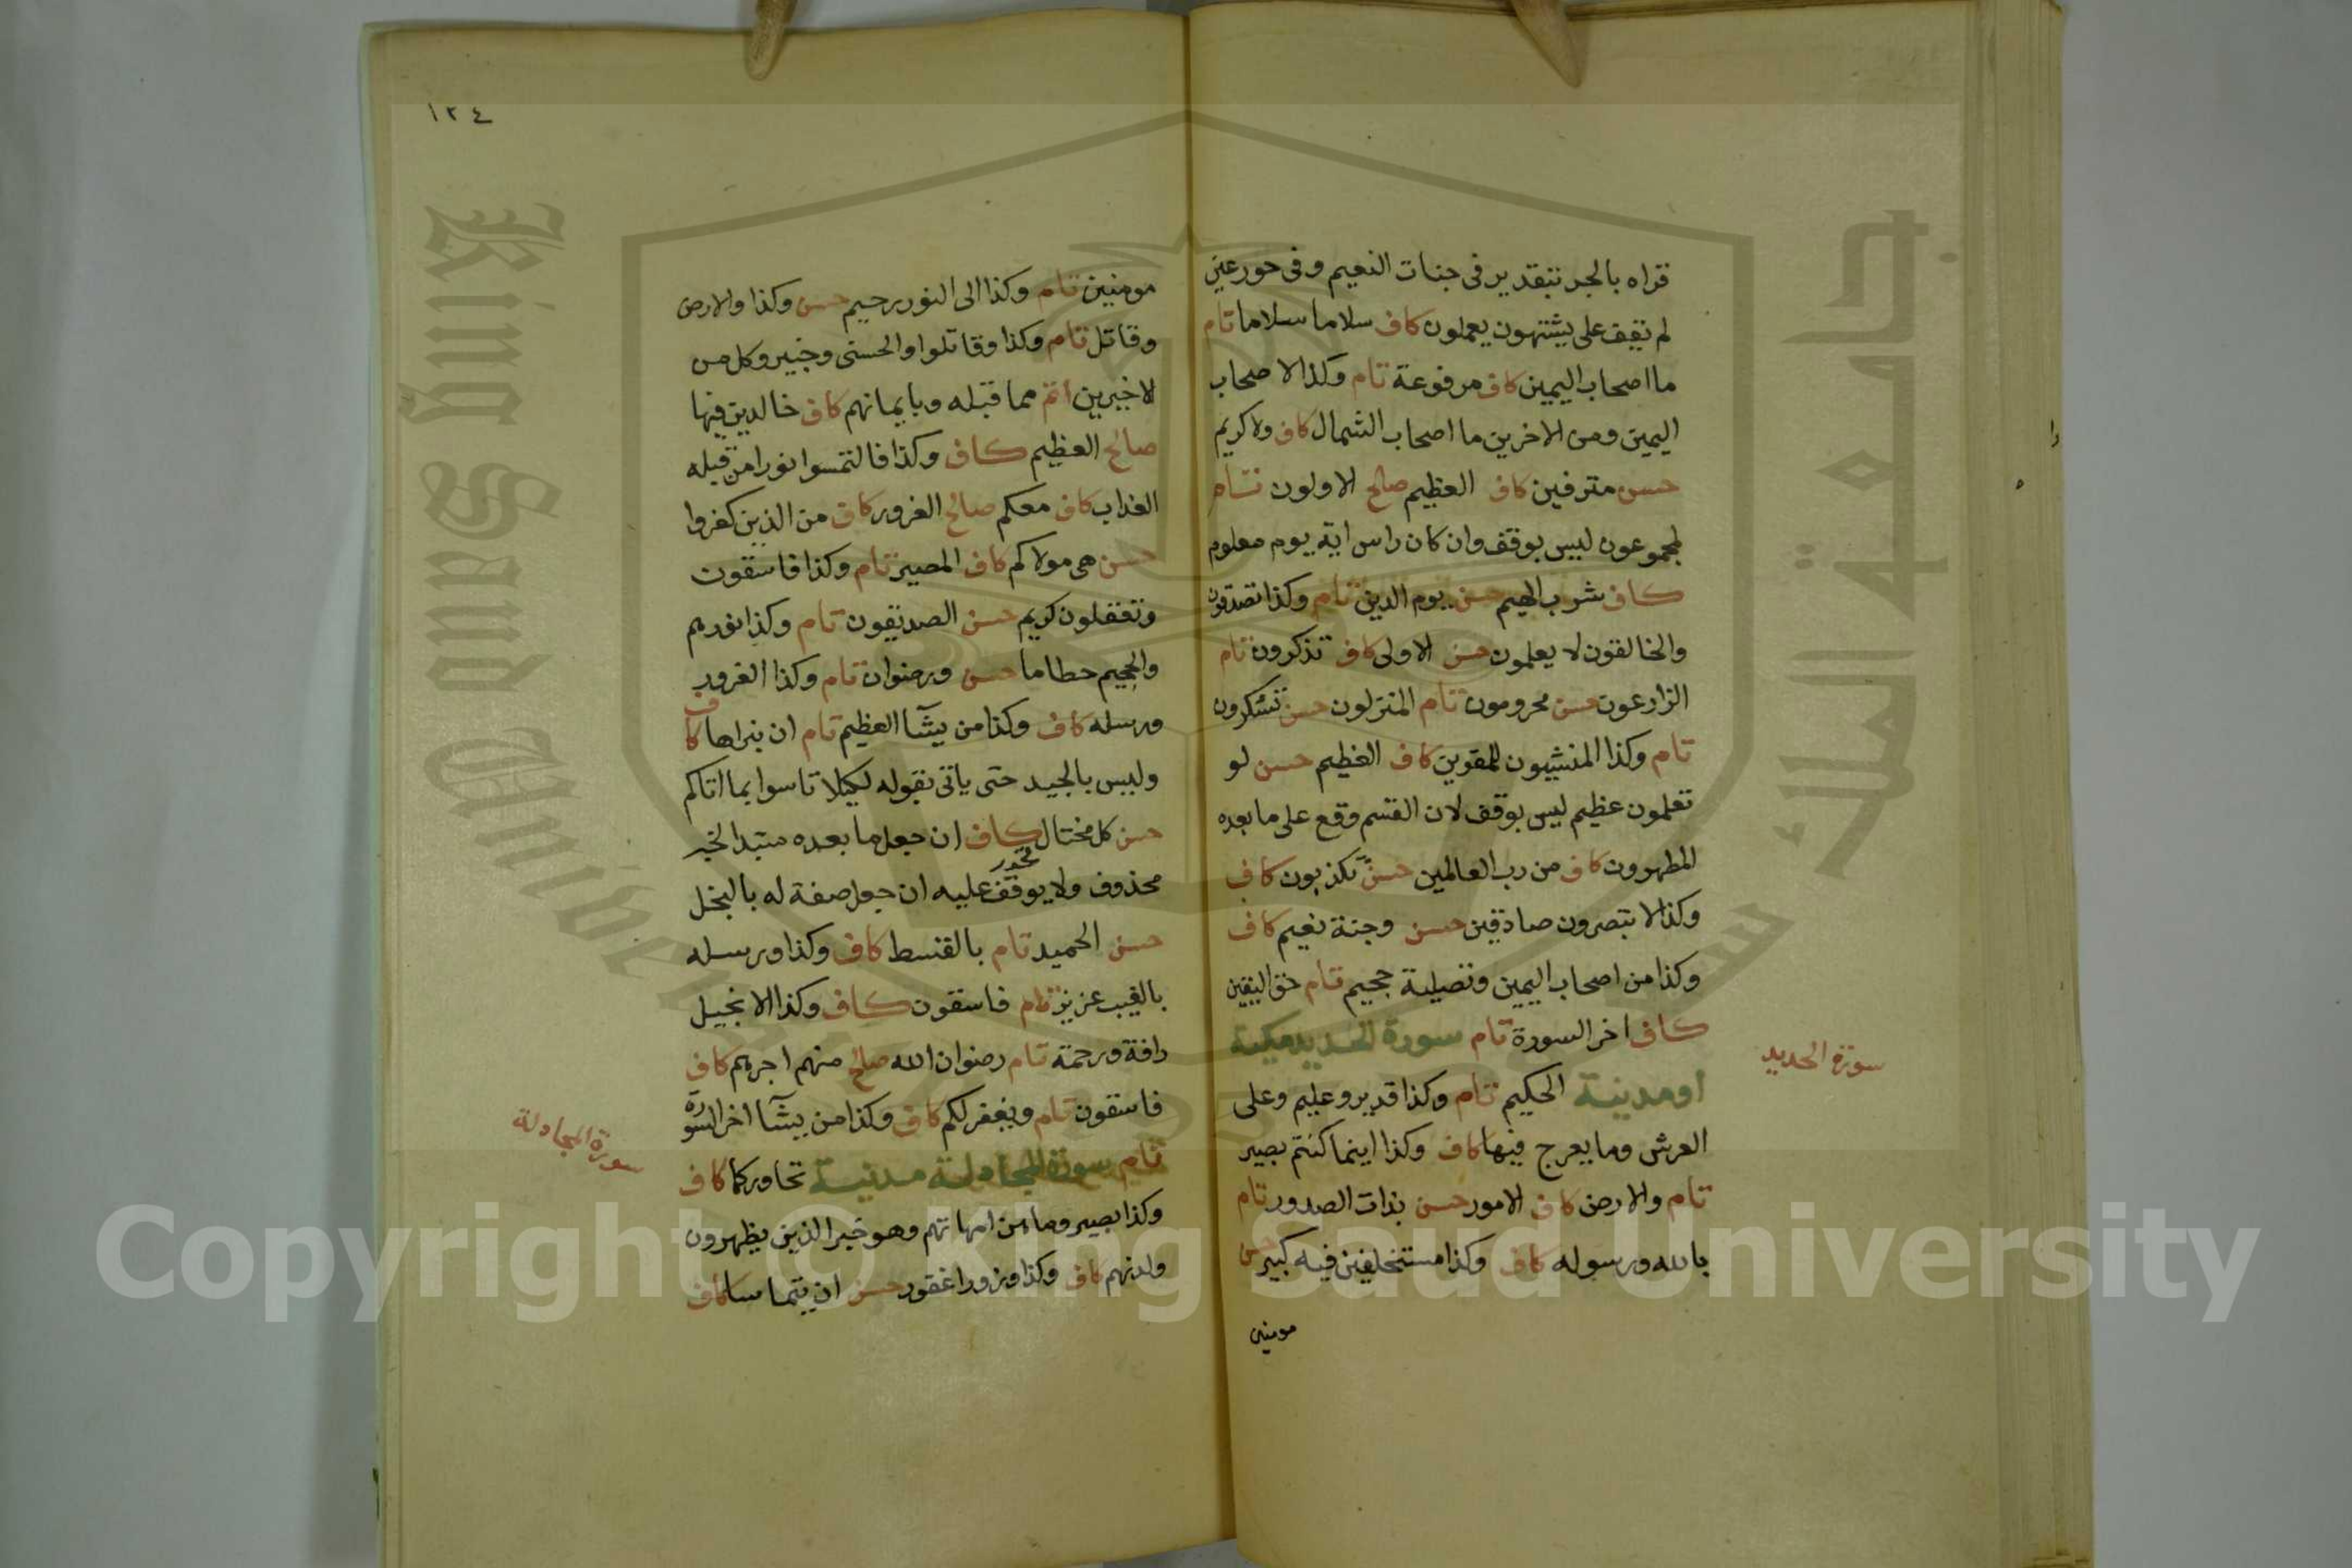 قراه بالجر بتقدير فى جنات النعيم وفى حور عين
لم يقف على يشتهون يعملون كاف سلاما سلاما تام
ما اصحاب اليمين كاف مرفوعة تام وكذا لا صحاب
اليمين ومن الاخرين ما اصحاب الشمال كاف ولا كريم
حسن مترفين كاف العظيم صالح الاولون تام
لمجموعون ليس بوقف وان كان راس اية يوم معلوم
كاف شرب الهيم حسن يوم الدين تام وكذا تصدقون
والخالقون لا يعلمون حسن الاولى كاف تذكرون تام
الزارعون حسن محرومون تام المنزلون حسن تشكرون
تام وكذا المنشيون للمقوين كاف العظيم حسن لو
تعلمون عظيم ليس بوقف لان القسم وقع على ما بعده
المطهرون كاف من رب العالمين حسن تكذبون كاف
وكذا لا تبصرون صادقين حسن وجنة نعيم كاف
وكذا من اصحاب اليمين وتصلية جحيم تام حق اليقين
كاف اخر السورة تام سورة الحديد مكية
او مدنية الحكيم تام وكذا قدير وعليم وعلى
العرش وما يعرج فيها كاف وكذا اينما كنتم بصير
تام والارض كاف الامور حسن بذات الصدور تام
بالله ورسوله كاف وكذا مستخلفين فيه كبير حسن
مومنين
سورة الحديد
١٢٤
مومنين تام وكذا الى النور رحيم حسن وكذا والارض
وقاتل تام وكذا وقاتلوا والحسنى وخبير وكل من
الاخيرين اتم مما قبله وبايمانهم كاف خالدين فيها
صالح العظيم كاف وكذا فالتمسوا نورا من قبله
العذاب كاف معكم صالح الغرور كاف من الذين كفروا
حسن هى مولاكم كاف المصير تام وكذا فاسقون
وتعقلون كريم حسن الصديقون تام وكذا نورهم
والجحيم حطاما حسن ورضوان تام وكذا الغرور
ورسله كاف وكذا من يشآ العظيم تام ان نبراها كاف
وليس بالجيد حتى ياتى بقوله لكيلا تاسوا بما اتاكم
حسن كل مختال كاف ان جعل ما بعده مبتدا الخبر
محذوف ولا يوقف عليه ان جعل صفة له بالبخل
حسن الحميد تام بالقسط كاف وكذا ورسله
بالغيب عزيز تام فاسقون كاف وكذا الانجيل
رافة ورحمة تام رضوان الله صالح منهم اجرهم كاف
فاسقون تام ويغفر لكم كاف وكذا من يشآ اخر السورة
تام سورة المجادلة مدنية تحاوركما كاف
وكذا بصير وما هن امهاتهم وهو خبر الذين يظهرون
ولدنهم كاف وكذا وزورا غفور حسن ان يتماسا كاف
سورة المجادلة
King Saud University
جامعة الملك سعود
Copyright © King Saud University